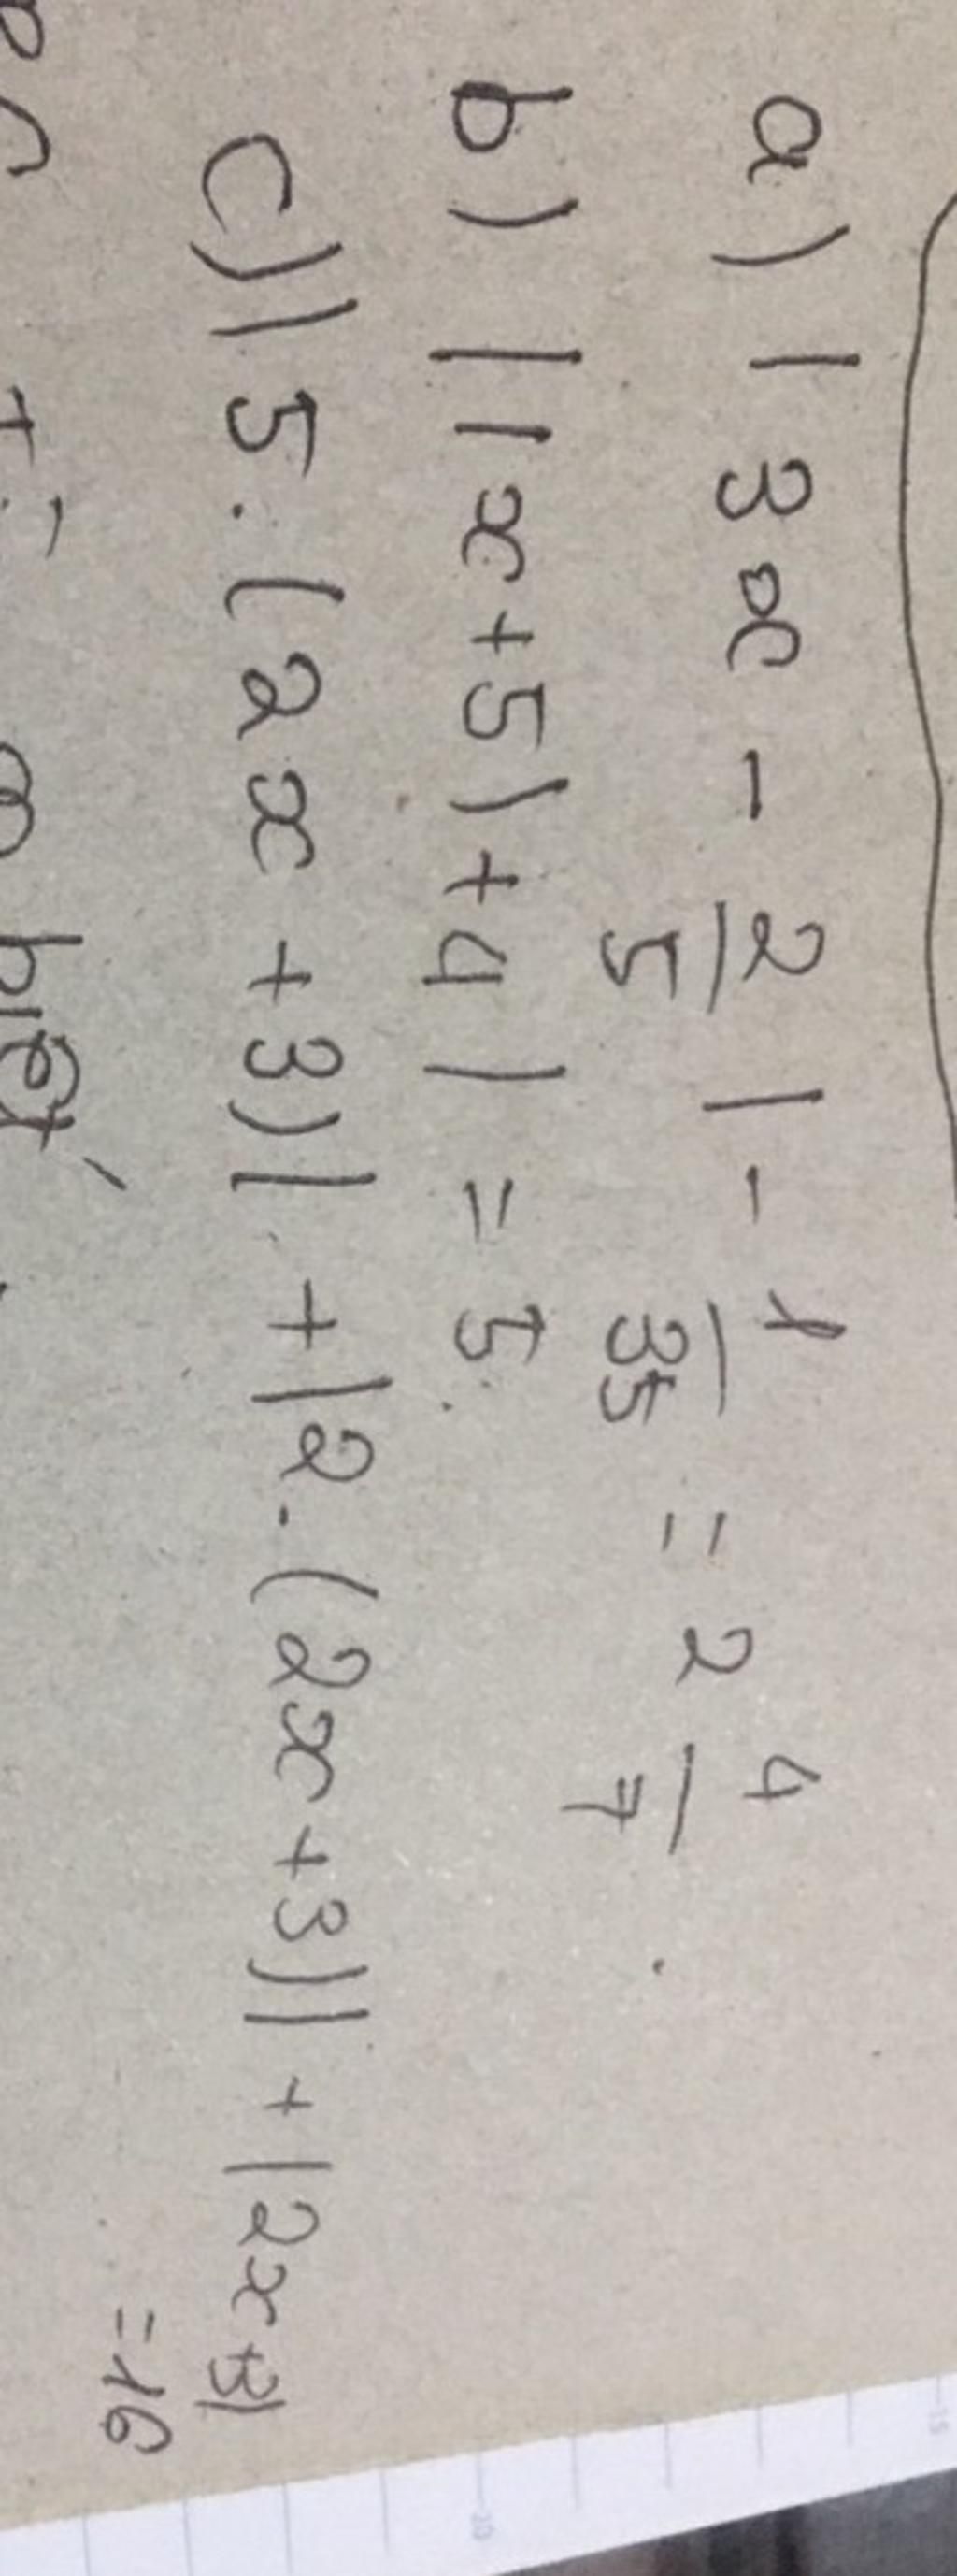 a) | 3x - 2/5 | - 1/35 = 2 4/7
b) | |x + 5| + 4 | = 5
c) | 5 . (2x + 3) | + | 2 . (2x + 3) | + | 2x + 3 | = 16
biết